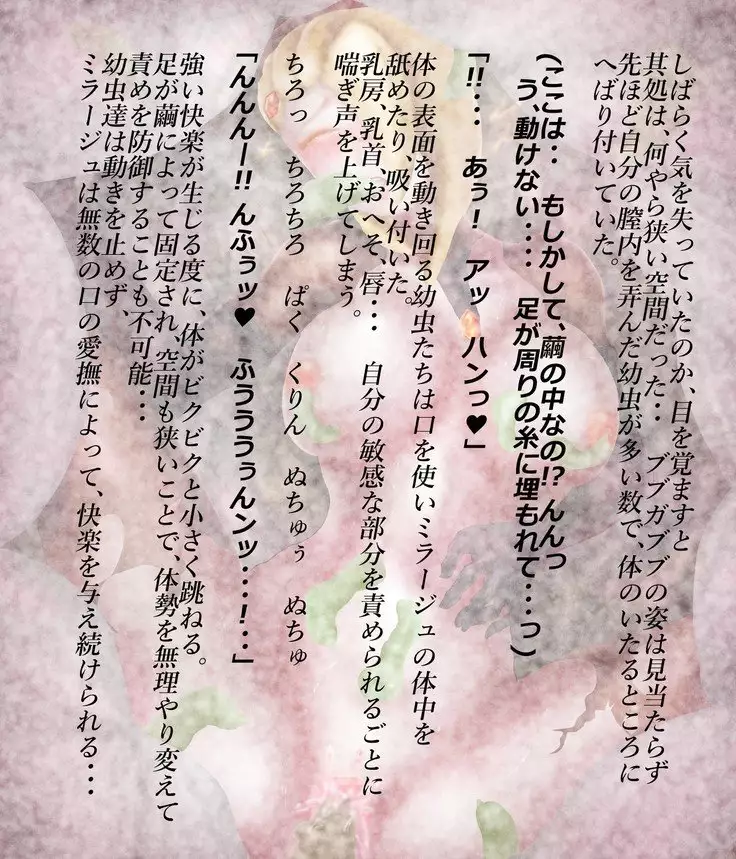 しばらく気を失っていたのか、目を覚ますと
其処は、何やら狭い空間だった・・　ブブガブブの姿は見当たらず
先ほど自分の膣内を弄んだ幼虫が多い数で、体のいたるところに
へばり付いていた。
(ここは・・　もしかして、繭の中なの!?　んんっ
う、動けない・・・・　足が周りの糸に埋もれて・・・っ)
「!!・・・　あぅ!　アッ　ハンっ♥」
体の表面を動き回る幼虫たちは口を使いミラージュの体中を
舐めたり、吸い付いた。
乳房、乳首、おへそ、唇・・・　自分の敏感な部分を責められるごとに
喘ぎ声を上げてしまう。
ちろっ　ちろちろ　ぱく　くりん　ぬちゅぅ　ぬちゅ
「んんんー!!　んふぅッ♥　ふうううぅんンッ・・・!・・」
強い快楽が生じる度に、体がビクビクと小さく跳ねる。
足が繭によって固定され、空間も狭いことで、体勢を無理やり変えて
責めを防御することも不可能・・・
幼虫達は動きを止めず、
ミラージュは無数の口の愛撫によって、快楽を与え続けられる・・・